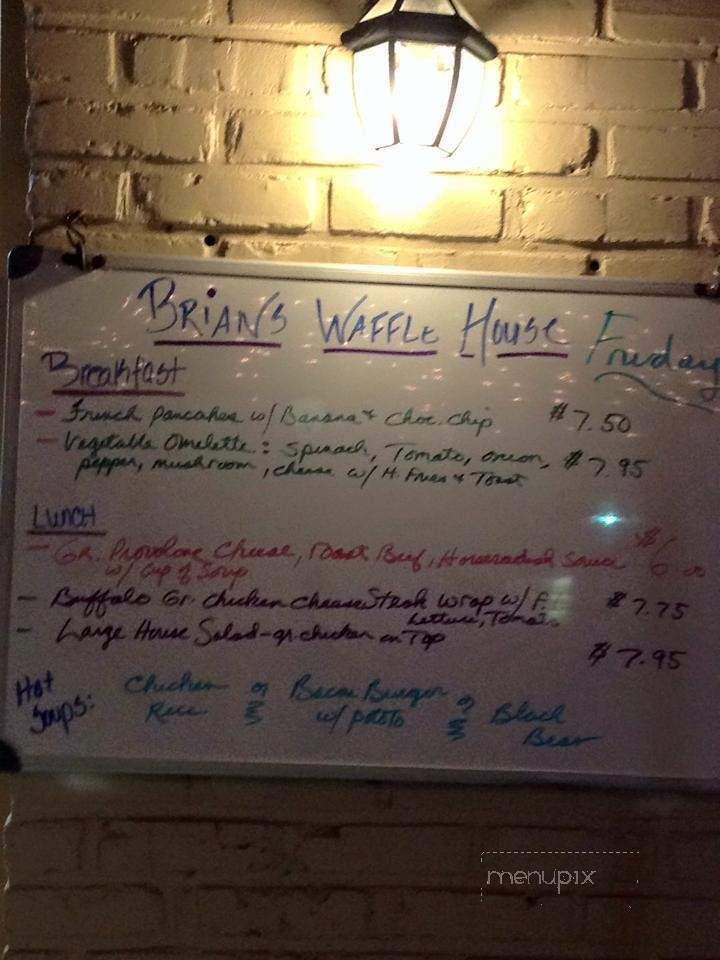 BRiANS WAFFLE HOUSE Friday
Breakfast
- French pancakes w/ Banana + Choc. chip $7.50
- Vegetable Omelette: Spinach, Tomato, onion, $7.95
pepper, mushroom, cheese w/ H. Fries + Toast
LUNCH
- Gr. Provolone Cheese, Roast Beef, Horseradish Sauce $6.00
w/ cup of Soup
- Buffalo Gr. chicken cheeseSteak wrap w/ F. $7.75
Lettuce, Tomato
- Large House Salad - gr chicken on Top
$7.95
Hot Soups:
Chicken Rice
Bacon Burger w/ potato
Black Bean
menupix